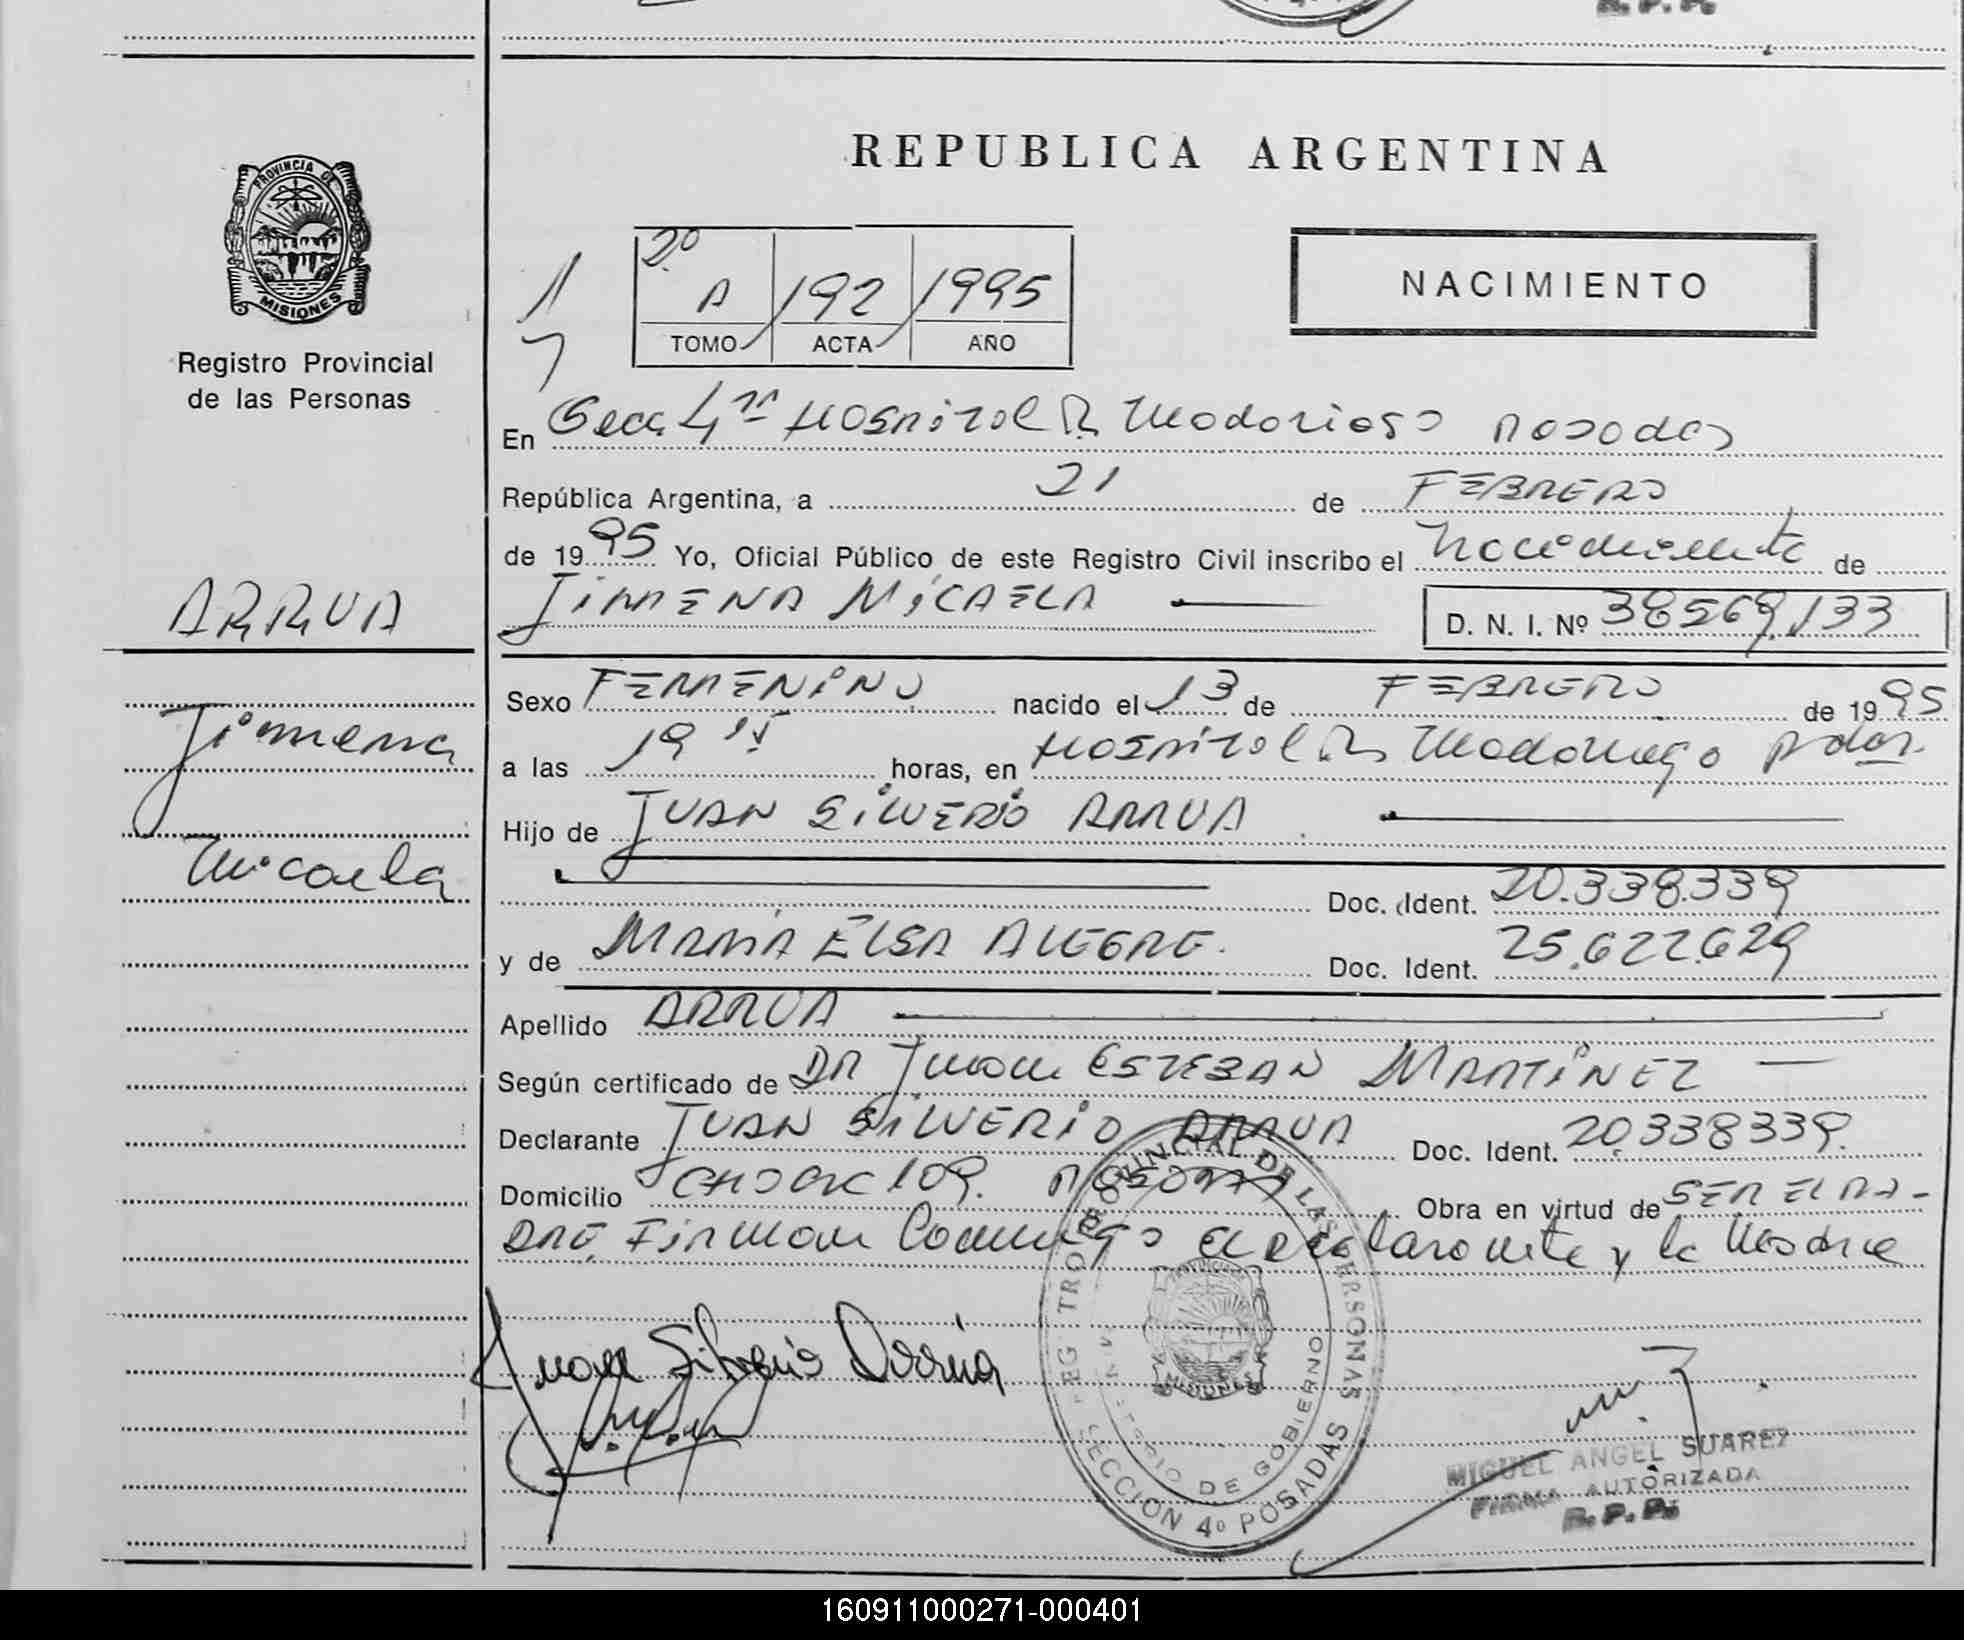 R. P. P.
REPUBLICA ARGENTINA
PROVINCIA DE
MISIONES
Registro Provincial
de las Personas
2º
A 192 1995
TOMO ACTA AÑO
NACIMIENTO
En Secc 4ª Hospital R. Madariaga Posadas
República Argentina, a 21 de FEBRERO
de 1995 Yo, Oficial Público de este Registro Civil inscribo el Nacimiento de
JIMENA MICAELA
D. N. I. Nº 38569.133
ARRUA
Jimena
Micaela
Sexo FEMENINO nacido el 13 de FEBRERO de 1995
a las 19 15 horas, en Hospital R. Madariaga Pdas.
Hijo de JUAN SILVERIO ARRUA
Doc. Ident. 20.338.339
y de MARIA ELSA ALEGRE. Doc. Ident. 25.622.629
Apellido ARRUA
Según certificado de DR Juan ESTEBAN MARTINEZ
Declarante JUAN SILVERIO ARRUA Doc. Ident. 20.338339.
Domicilio 109. POSADAS Obra en virtud de SER EL PA-
DRE. Firman Conmigo el declarante y la Madre
Juan Silverio Arrua
REG TRO PROVINCIAL DE LAS PERSONAS
SECCION 4º POSADAS
MINISTERIO DE GOBIERNO
PROVINCIA DE
MISIONES
MIGUEL ANGEL SUAREZ
FIRMA AUTORIZADA
R. P. P.
160911000271-000401